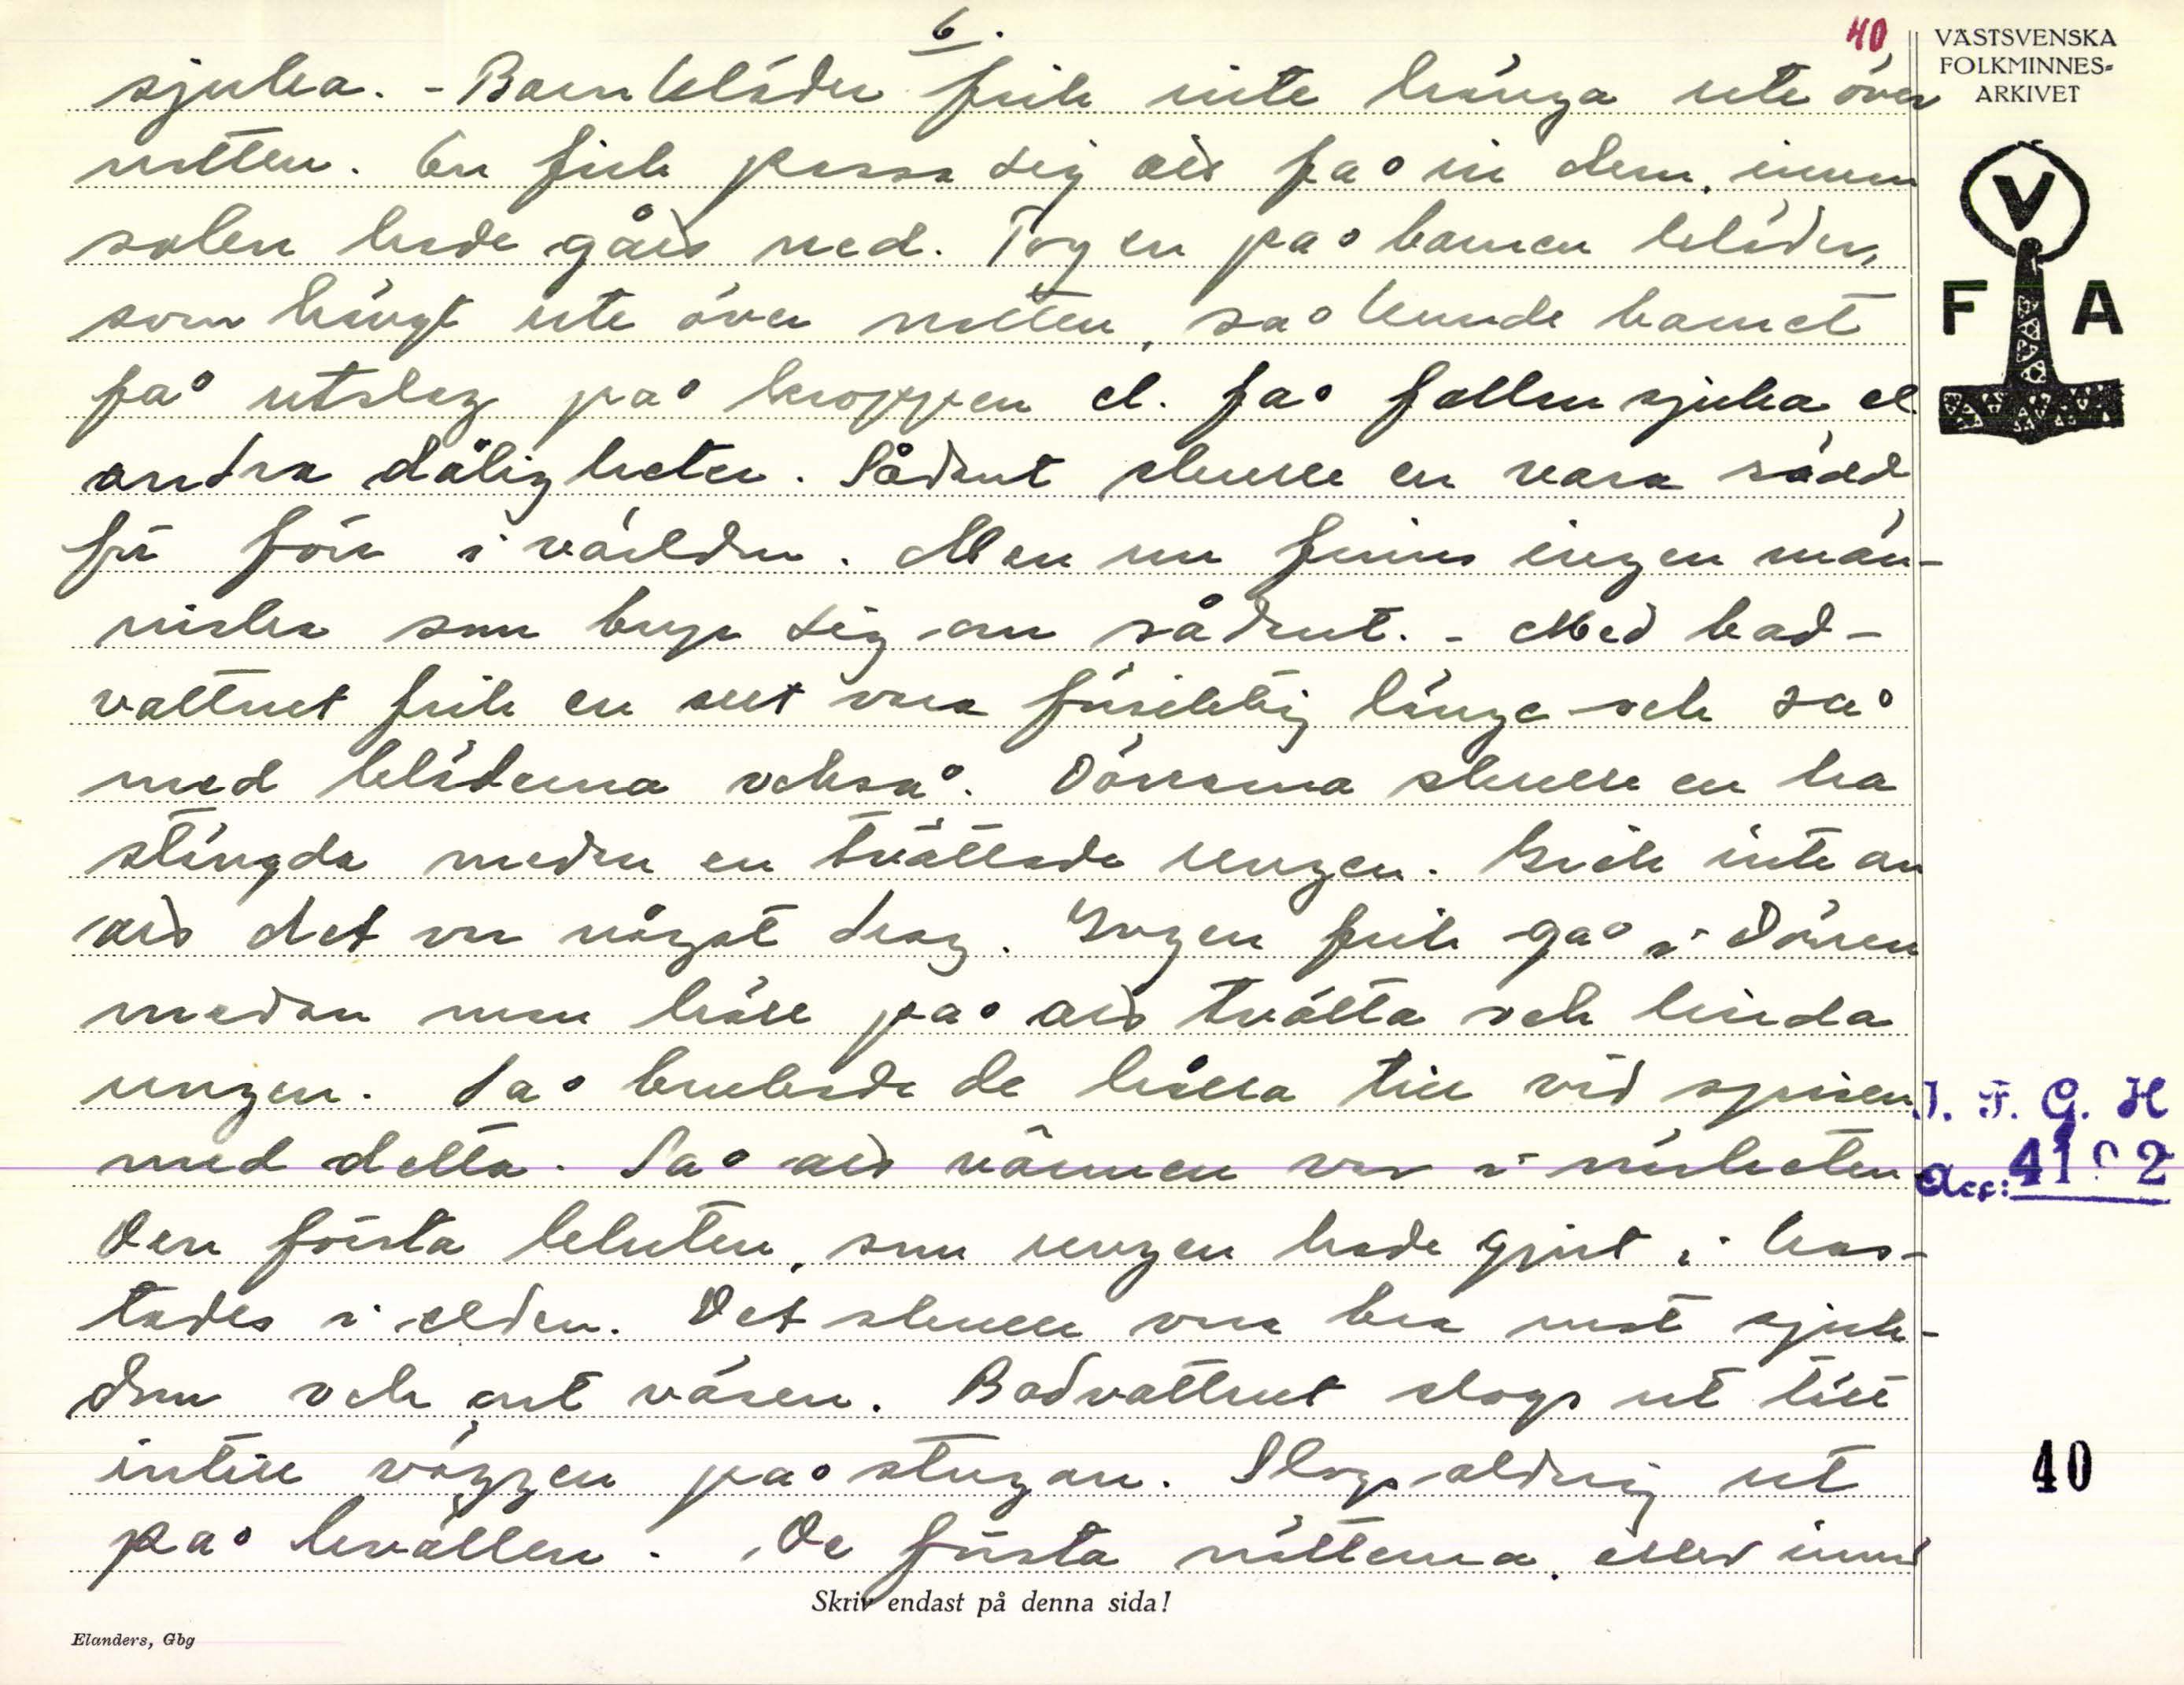 6.
40
VÄSTSVENSKA
FOLKMINNES-
ARKIVET
V
F A
sjuka. - Barnkläder fick inte hänga ute över
natten. En fick passa sig aid få in dem, innan
solen hade gåid ned. Tog en på barnen kläder,
som hängt ute över natten, så kunde barnet
få utslag på kroppen el. få fallensjuka el.
andra dåligheter. Sådant skulle en vara rädd
för förr i världen. Men nu finns ingen män-
niska som bryr sig om sådant. - Med bad-
vattnet fick en aut vara försiktig länge och så
med kläderna också. Dörrarna skulle en ha
stängda medan en tvättade ungen. Gick inte an
aid det var något drag. Ingen fick gå i dörren
medan man höll på aid tvätta och linda
ungen. Så brukade de hålla till vid spisen
med detta. Så aid värmen var i närheten.
Den första kluten, som ungen hade gjort i kas-
tades i elden. Det skulle vara bra mot sjuk-
dom och ont väsen. Badvattnet slogs ut tätt
intill väggen på stugan. Slogs aldrig ut
på levällen. De första nätterna, eller innan
I. F. G. H
Acc: 41 2
40
Skriv endast på denna sida!
Elanders, Gbg